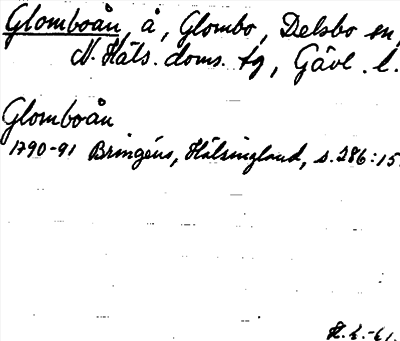 Glomboån, å, Glombo, Delsbo sn,
N. Häls. doms. tg, Gävl. l.
Glomboån
1790-91 Bringéus, Hälsingland, s. 286:15.
H.E.-61.